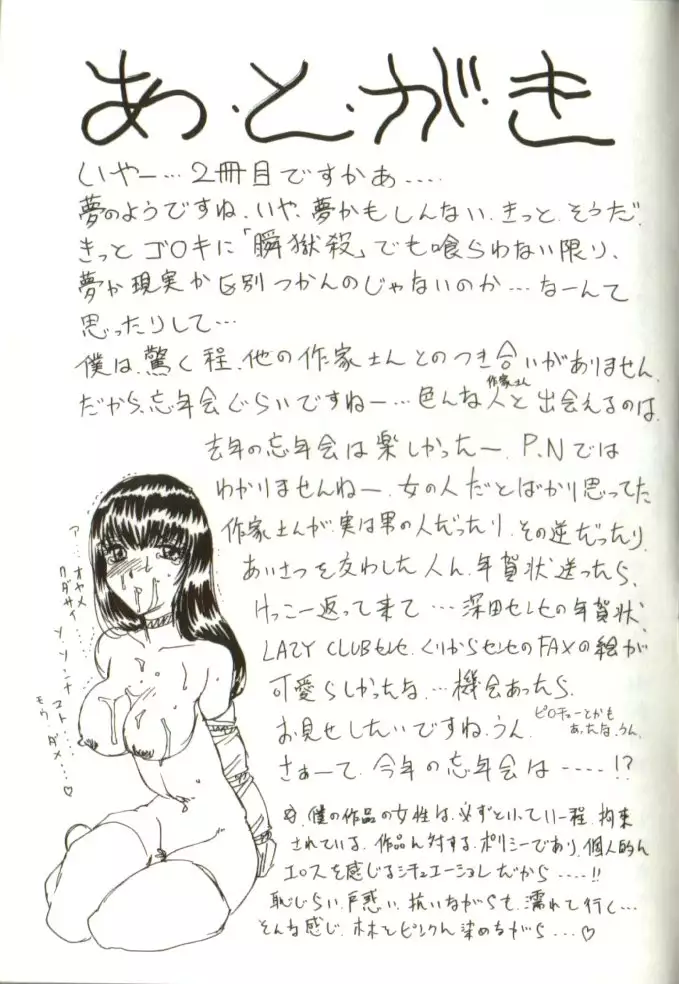 あ・と・が・き
いやー…2冊目ですかあ‥‥
夢のようですね、いや、夢かもしんない、きっと、そうだ、
きっと ゴロキに「瞬獄殺」でも喰らわない限り、
夢か現実か区別つかんのじゃないのか…なーんて
思ったりして…
僕は、驚く程、他の作家さんとのつき合いがありません、
だから、忘年会ぐらいですねー…色んな人と出会えるのは、
作家さん
去年の忘年会は楽しかったー、P.Nでは
わかりませんねー、女の人だとばかり思ってた
作家さんが、実は男の人だったり、その逆だったり、
あいさつを交わした人ん、年賀状送ったら、
けっこー返って来て…深田センセの年賀状、
LAZY CLUBセンセ、くりからセンセのFAXの絵が
可愛らしかったな、…機会あったら、
お見せしたいですね、うん、
ピロチューとかも
あったな、うん、
さぁーて、今年の忘年会は‥‥!?
僕の作品の女性は、必ずといってい程、拘束
されている、作品ん対する、ポリシーであり、個人的ん
エロスを感じるシチュエーションだから‥‥!!
恥じらい、戸惑い、抗いながらも、濡れて行く…
そんな感じ、ホホとピンクん染めながら…♡
ア…オヤメ
クダサイ
ソ、ソンナ
コト……
モウ、ダメ…♡